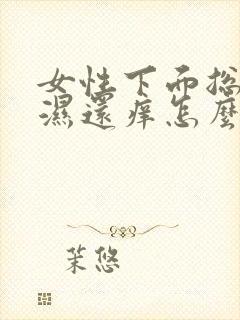 女性下面总
濕還痒怎麼
茉悠